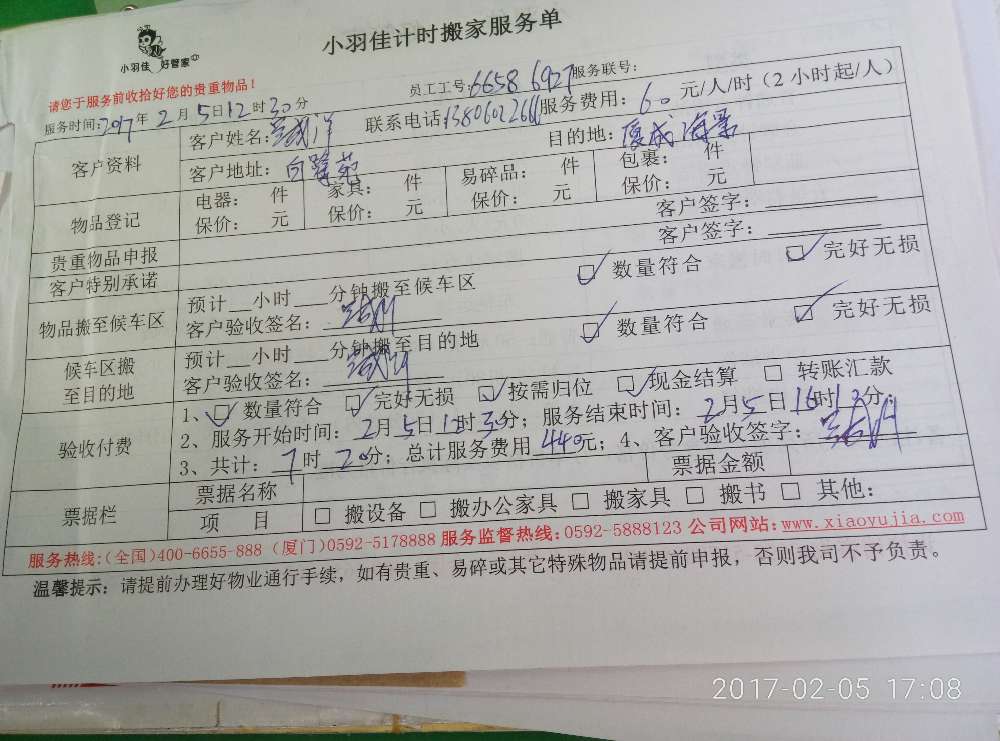 小羽佳 好管家
小羽佳计时搬家服务单
请您于服务前收拾好您的贵重物品！
员工工号：6658 6927 服务联号：
服务时间：2017年2月5日12时30分 联系电话：服务费用：60元/人/时（2小时起/人）
客户资料 客户姓名： 目的地：
客户地址：白鹭苑
物品登记 电器： 件 家具： 件 易碎品： 件 包裹： 件
保价： 元 保价： 元 保价： 元 保价： 元
贵重物品申报 客户签字：
客户特别承诺 客户签字：
物品搬至候车区 预计__小时___分钟搬至候车区 ☑ 数量符合 ☑ 完好无损
客户验收签名：
候车区搬至目的地 预计__小时___分钟搬至目的地 ☑ 数量符合 ☑ 完好无损
客户验收签名：
验收付费 1、☑ 数量符合 ☑ 完好无损 ☑ 按需归位 ☑ 现金结算 □ 转账汇款
2、服务开始时间：2月5日1时30分；服务结束时间：2月5日16时分
3、共计：7时20分；总计服务费用440元；4、客户验收签字：
票据栏 票据名称 票据金额
项 目 □ 搬设备 □ 搬办公家具 □ 搬家具 □ 搬书 □ 其他：
服务热线：(全国)400-6655-888 (厦门)0592-5178888 服务监督热线：0592-5888123 公司网站：www.xiaoyujia.com
温馨提示：请提前办理好物业通行手续，如有贵重、易碎或其它特殊物品请提前申报，否则我司不予负责。
2017-02-05 17:08